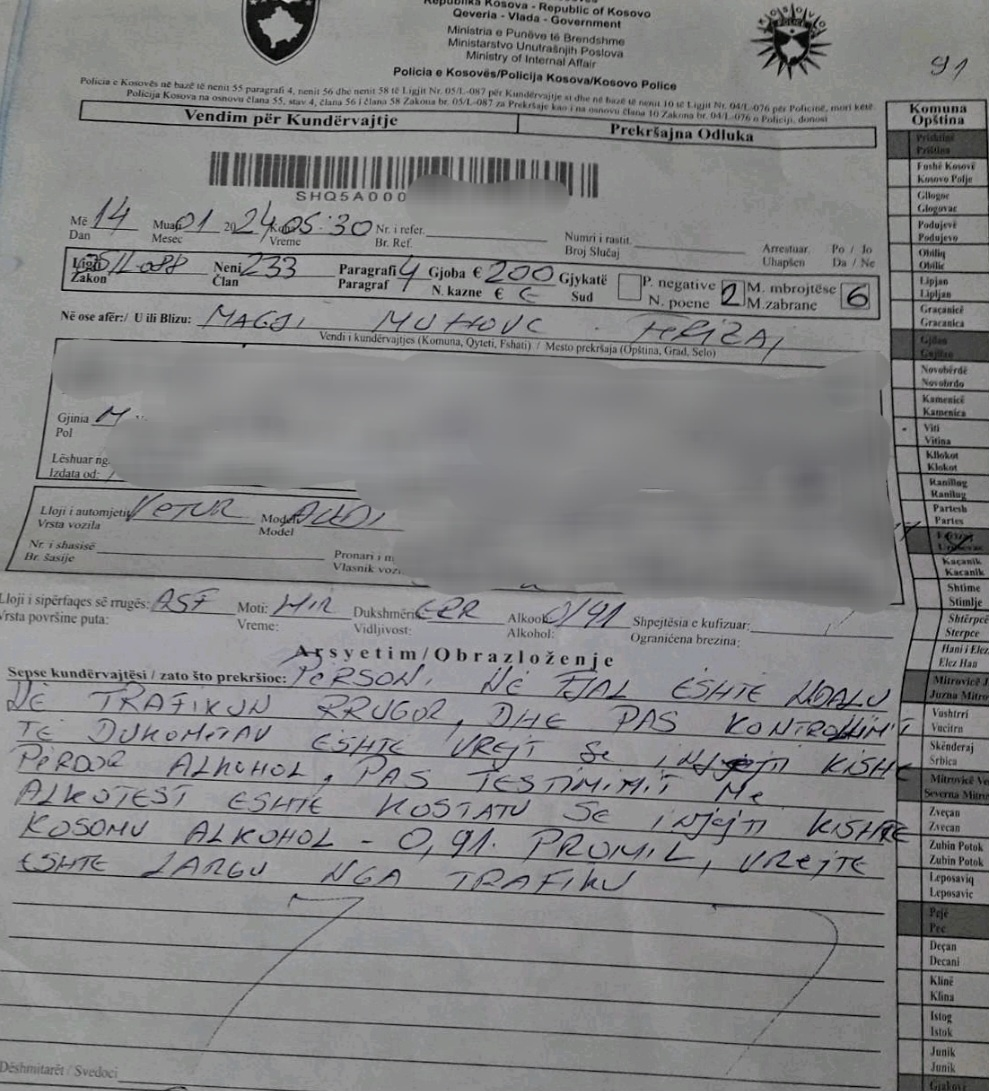 Republika Kosova - Republic of Kosovo
Qeveria - Vlada - Government
Ministria e Punëve të Brendshme
Ministarstvo Unutrašnjih Poslova
Ministry of Internal Affair
Policia e Kosovës/Policija Kosova/Kosovo Police
91
Policia e Kosovës në bazë të nenit 55 paragrafi 4, nenit 56 dhe nenit 58 të Ligjit Nr. 05/L-087 për Kundërvajtje si dhe në bazë të nenit 10 së Ligjit Nr. 04/L-076 për Policinë, mori këtë
Policija Kosova na osnovu člana 55, stav 4, člana 56 i člana 58 Zakona br. 05/L-087 za Prekršaje kao i na osnovu člana 10 Zakona br. 04/L-076 o Policiji, donosi
Vendim për Kundërvajtje Prekršajna Odluka
SHQ5A000
Më 14 Muaj 01 2024 05:30 Nr. i refer. Numri i rastit Arrestuar Po / Jo
Dan Mesec Vreme Br. Ref. Broj Slučaj Uhapšen Da / Ne
Ligji 05/L-088 Neni 233 Paragrafi 4 Gjoba € 200 Gjykatë P. negative 2 M. mbrojtëse 6
Zakon Član Paragraf N. kazne € Sud N. poene M.zabrane
Në ose afër:/ U ili Blizu: MAGJ. MUHOVC FERIZAJ
Vendi i kundërvajtjes (Komuna, Qyteti, Fshati) / Mesto prekršaja (Opština, Grad, Selo)
Gjinia M
Pol
Lëshuar ng
Izdata od:
Lloji i automjetit VETUR Model AUDI
Vrsta vozila Model
Nr. i shasisë Pronari i m
Br. šasije Vlasnik vozi
Lloji i sipërfaqes së rrugës: ASF Moti: MIR Dukshmëria ERR Alkool 0/91 Shpejtësia e kufizuar:
Vrsta površine puta: Vreme: Vidljivost: Alkohol: Ograničena brezina:
Arsyetim/Obrazloženje
Sepse kundërvajtësi / zato što prekršioc: PERSONI NË FJAL ESHTE NDALU
NË TRAFIKUN RRUGOR, DHE PAS KONTROLLIMIT
TE DUKOMETAV ESHTE VREJT SE I NJEJTI KISHE
PERDOR ALKOHOL, PAS TESTIMIMIT ME
ALKOTEST ESHTE KOSTATU SE I NJEJTI KISHTE
KOSOMU ALKOHOL - 0,91. PROMIL, VREJTE
ESHTE LARGU NGA TRAFIKU
Dëshmitarët / Svedoci
Komuna
Opština
Prishtinë
Priština
Fushë Kosovë
Kosovo Polje
Gllogoc
Glogovac
Podujevë
Podujevo
Obiliq
Obilic
Lipjan
Lipljan
Graçanicë
Gracanica
Gjilan
Gnjilan
Novobërdë
Novobrdo
Kamenicë
Kamenica
Viti
Vitina
Kllokot
Klokot
Ranillug
Ranilug
Partesh
Partes
Ferizaj
Urosevac
Kaçanik
Kacanik
Shtime
Stimlje
Shtërpcë
Sterpce
Hani i Elez
Elez Han
Mitrovicë J
Juzna Mitro
Vushtrri
Vucitrn
Skënderaj
Srbica
Mitrovicë Ve
Severna Mitro
Zveçan
Zvecan
Zubin Potok
Zubin Potok
Leposaviq
Leposavic
Pejë
Pec
Deçan
Decani
Klinë
Klina
Istog
Istok
Junik
Junik
Gjakovë